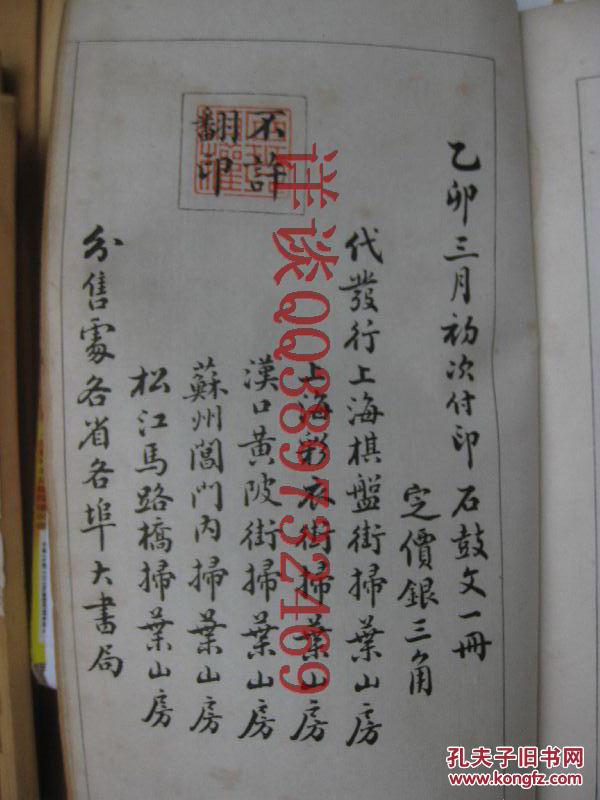 乙卯三月初次付印 石鼓文一冊
定價銀三角
代發行上海棋盤街掃葉山房
上海彩衣街掃葉山房
漢口黃陂街掃葉山房
蘇州閶門內掃葉山房
松江馬路橋掃葉山房
分售處各省各埠大書局
不許
翻印
详谈QQ389732469
孔夫子旧书网
www.kongfz.com